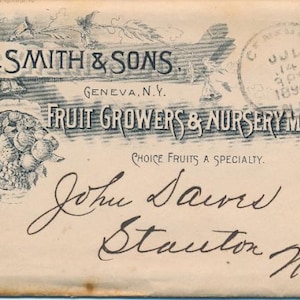 SMITH & SONS.
GENEVA, N.Y.
FRUIT GROWERS & NURSERYM
CHOICE FRUITS A SPECIALTY.
John Dawes
Stanton